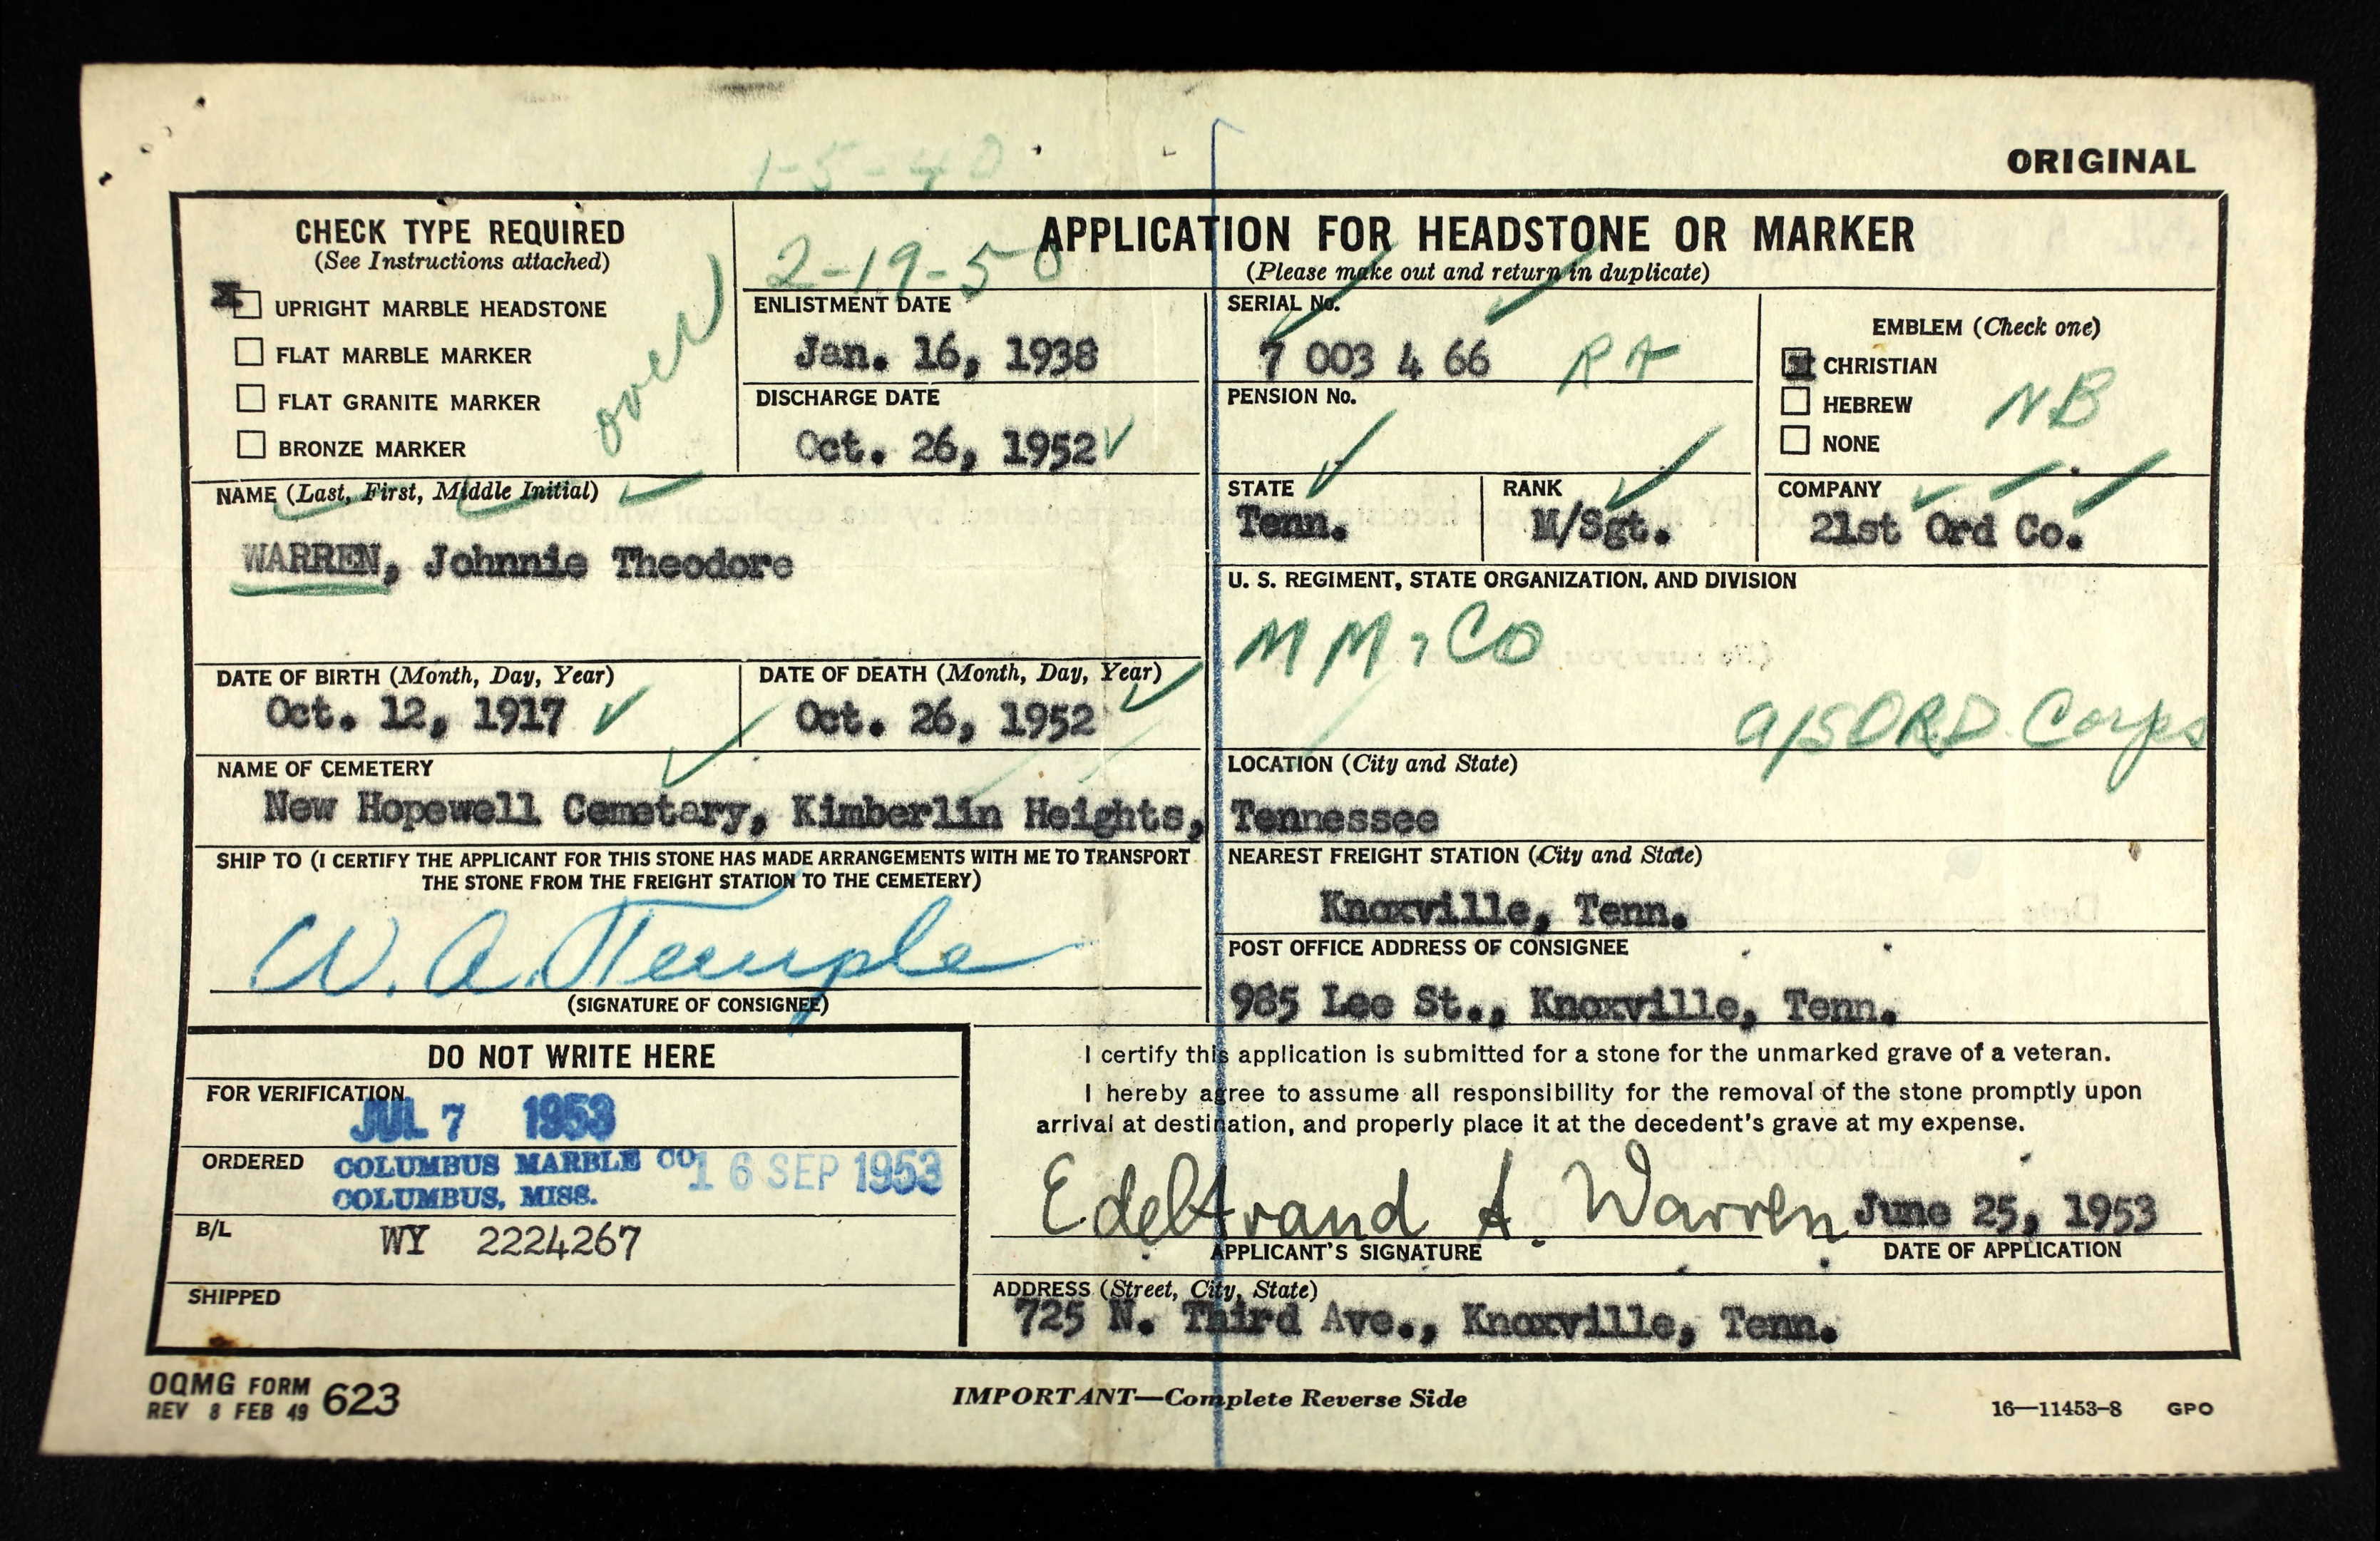 1-5-40
ORIGINAL
CHECK TYPE REQUIRED
(See Instructions attached)
UPRIGHT MARBLE HEADSTONE
FLAT MARBLE MARKER
FLAT GRANITE MARKER
BRONZE MARKER
over
2-19-50
APPLICATION FOR HEADSTONE OR MARKER
(Please make out and return in duplicate)
ENLISTMENT DATE
Jan. 16, 1938
DISCHARGE DATE
Oct. 26, 1952
SERIAL No.
7 003 4 66 RA
PENSION No.
EMBLEM (Check one)
CHRISTIAN
HEBREW
NONE
NB
NAME (Last, First, Middle Initial)
WARREN, Johnnie Theodore
STATE
Tenn.
RANK
M/Sgt.
COMPANY
21st Ord Co.
U. S. REGIMENT, STATE ORGANIZATION, AND DIVISION
MM Co
ORD Corps
DATE OF BIRTH (Month, Day, Year)
Oct. 12, 1917
DATE OF DEATH (Month, Day, Year)
Oct. 26, 1952
NAME OF CEMETERY
New Hopewell Cemetary, Kimberlin Heights,
LOCATION (City and State)
Tennessee
SHIP TO (I CERTIFY THE APPLICANT FOR THIS STONE HAS MADE ARRANGEMENTS WITH ME TO TRANSPORT
THE STONE FROM THE FREIGHT STATION TO THE CEMETERY)
W. A. Temple
(SIGNATURE OF CONSIGNEE)
NEAREST FREIGHT STATION (City and State)
Knoxville, Tenn.
POST OFFICE ADDRESS OF CONSIGNEE
985 Lee St., Knoxville, Tenn.
DO NOT WRITE HERE
FOR VERIFICATION
JUL 7 1953
ORDERED
COLUMBUS MARBLE CO
COLUMBUS, MISS.
16 SEP 1953
B/L
WY 2224267
SHIPPED
I certify this application is submitted for a stone for the unmarked grave of a veteran.
I hereby agree to assume all responsibility for the removal of the stone promptly upon
arrival at destination, and properly place it at the decedent's grave at my expense.
Edeltrand A. Warren
June 25, 1953
APPLICANT'S SIGNATURE
DATE OF APPLICATION
ADDRESS (Street, City, State)
725 N. Third Ave., Knoxville, Tenn.
OQMG FORM 623
REV 8 FEB 49
IMPORTANT—Complete Reverse Side
16—11453-8 GPO